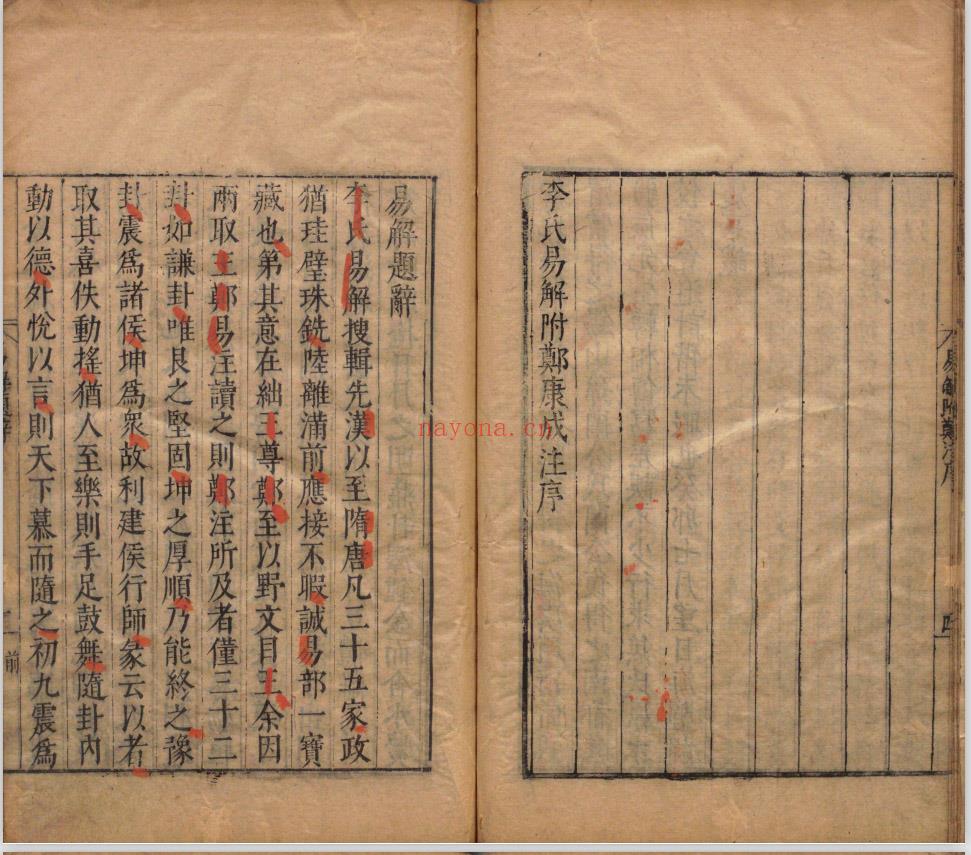 李氏易解附鄭康成注序
易解附鄭注序
四
易解題辭
李氏易解搜輯先漢以至隋唐凡三十五家政
猶珪璧珠銑陸離滿前應接不暇誠易部一寶
藏也第其意在絀王尊鄭至以野文目王余因
兩取王鄭易注讀之則鄭注所及者僅三十二
卦如謙卦唯艮之堅固坤之厚順乃能終之豫
卦震爲諸侯坤爲衆故利建侯行師象云以者
取其喜佚動搖猶人至樂則手足鼓舞隨卦內
動以德外悅以言則天下慕而隨之初九震爲
前
nayona.cn